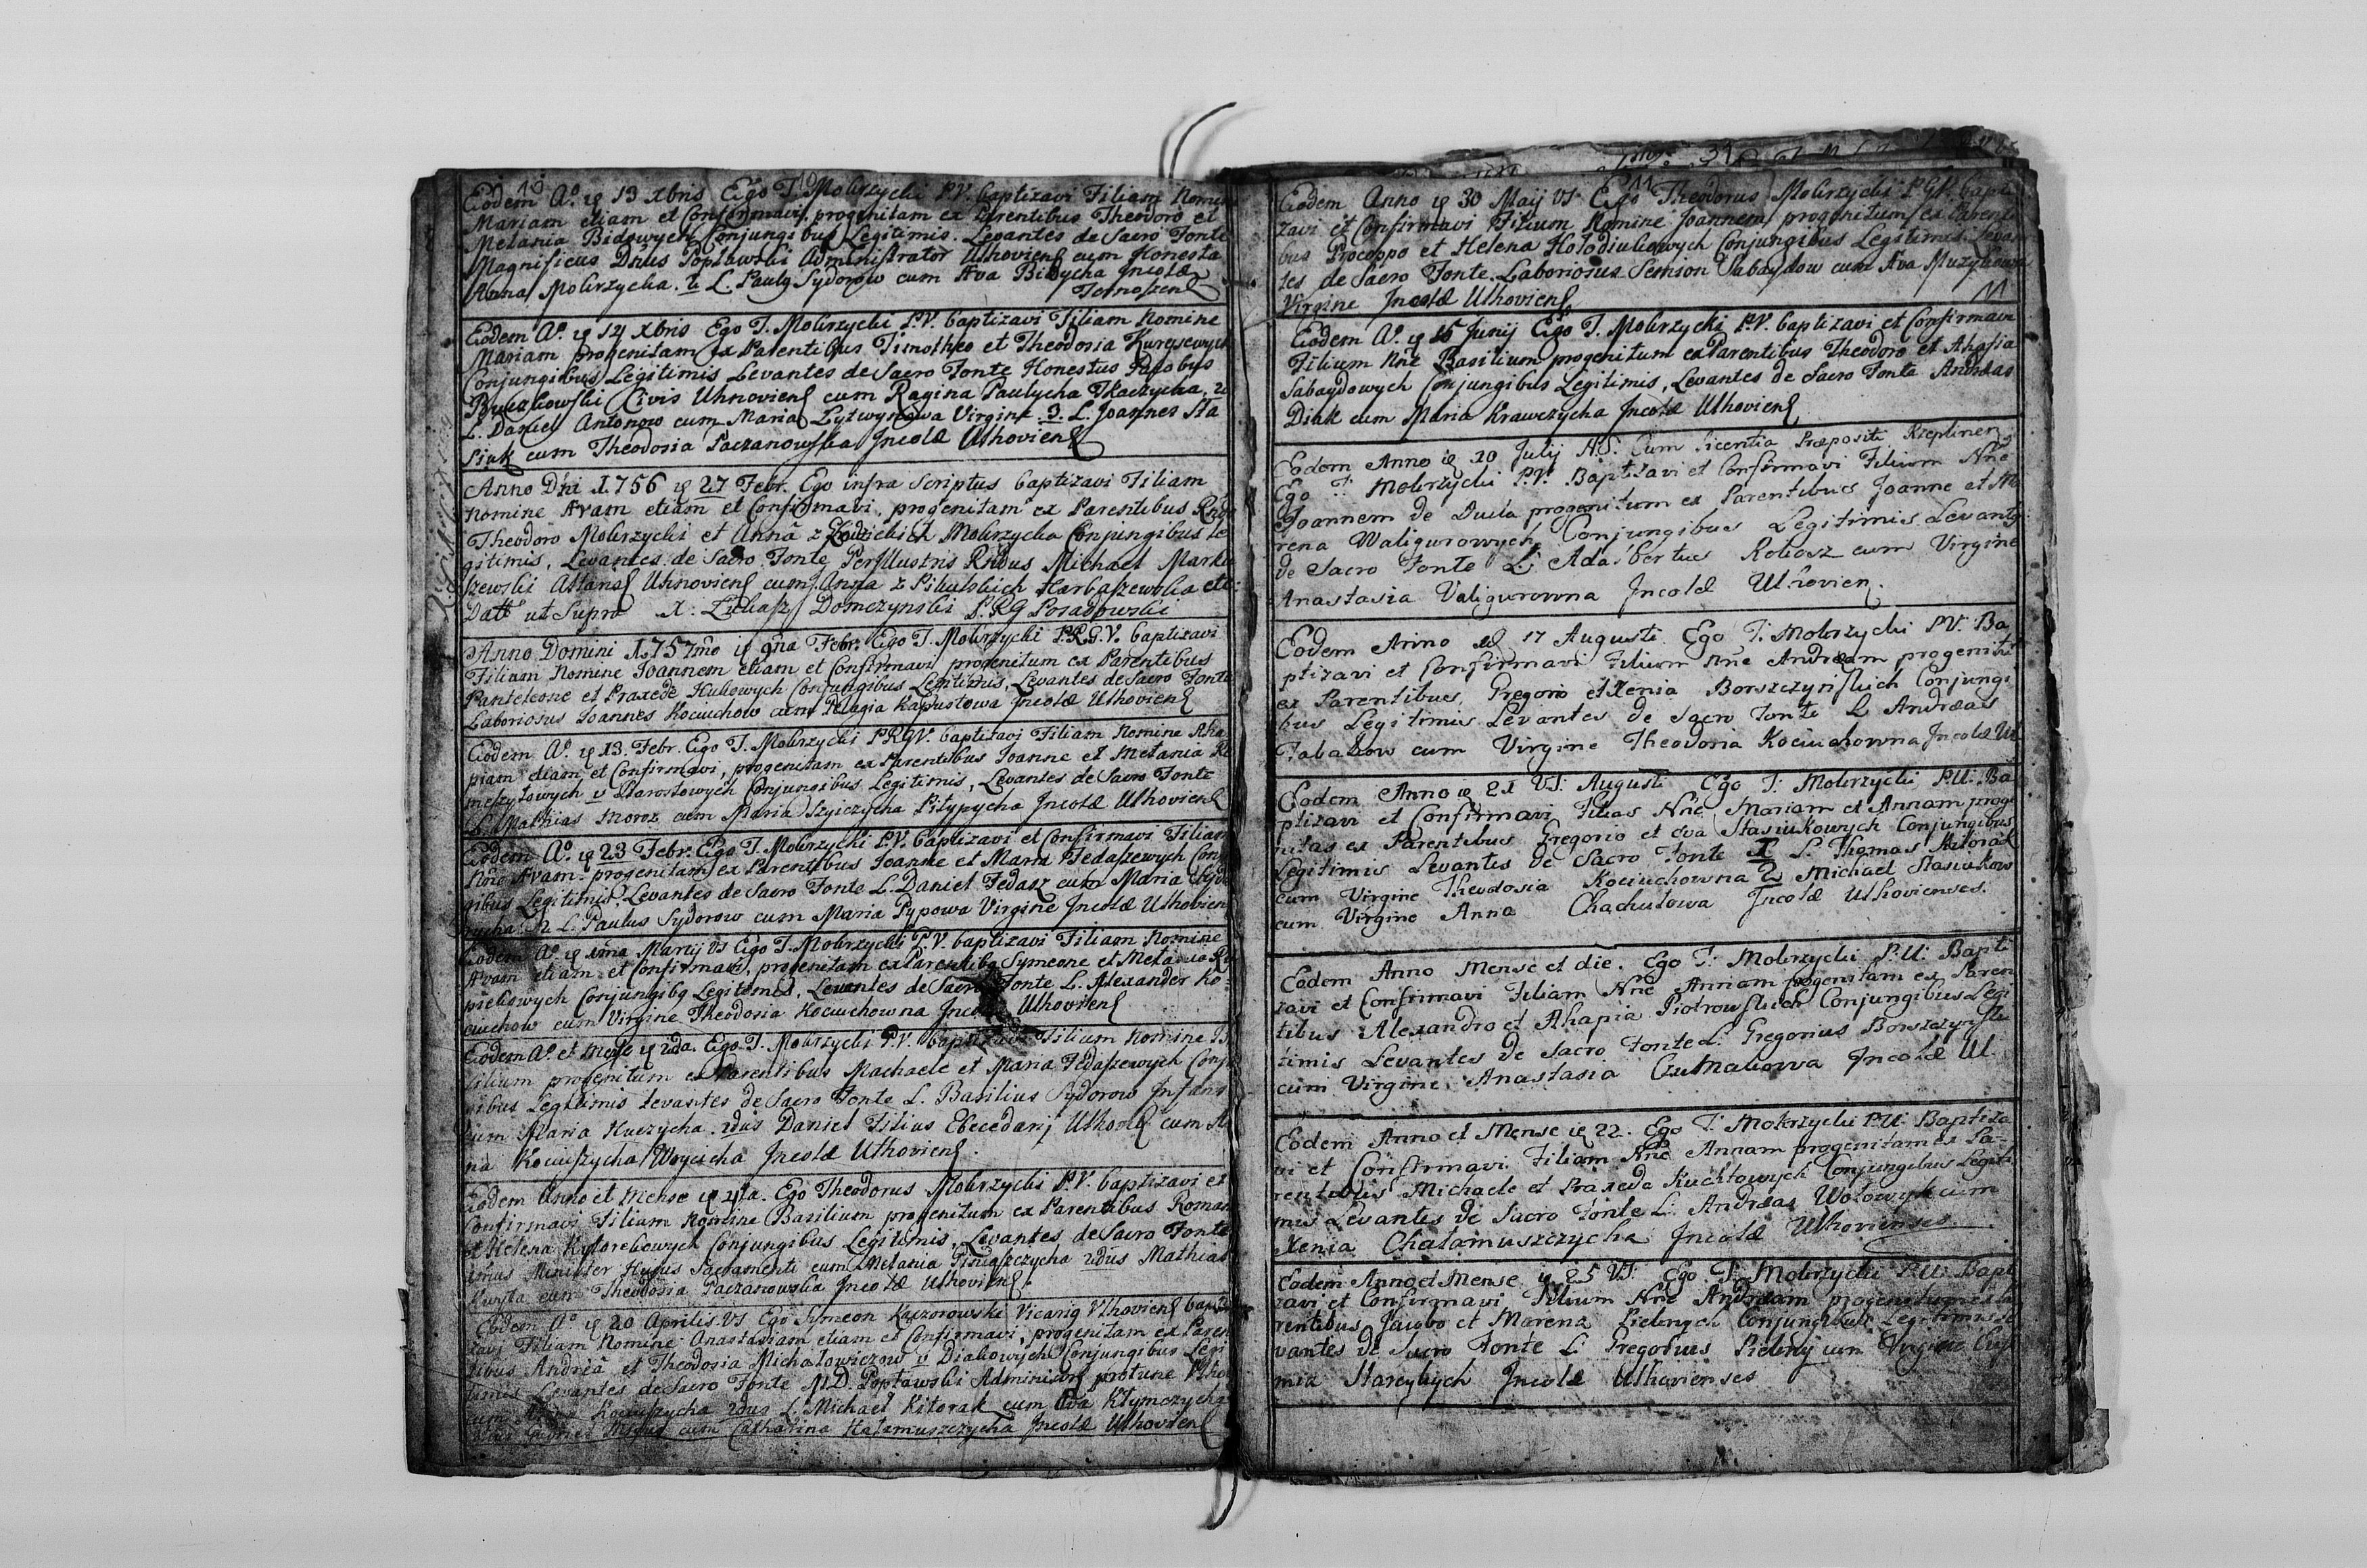 10
Eodem Aº. ię 13 xbris Ego T. Mokrzycki P.V. baptizavi Filiam Nomine
Mariam etiam et Confirmavi, progenitam ex Parentibus Theodoro et
Melania Bidowych Conjungibus Legitimis. Levantes de Sacro Fonte
Magnificus Dnus Popławski Administrator Uhnoviens cum Honesta
Anna Mokrzycka. 2 L. Pauly Sydorow cum Ava Bidycha Incolæ
Eodem Aº. ię 14 xbris Ego T. Mokrzycki P.V. baptizavi Filiam Nomine
Mariam progenitam ex Parentibus Timotheo et Theodosia
Conjungibus Legitimis Levantes de Sacro Fonte Honestus Jacobus
Civis Uhnoviens cum Ragina Paulycha Tkaczycha, 2
L. Daniel Antonow cum Maria Lytwynowa Virgine. 3. L. Joannes Sta
siuk cum Theodosia Paczanowska Incolæ Ulhoviens
Anno Dni 1756 ię 27 Febr. Ego infra Scriptus baptizavi Filiam
Nomine Avam etiam et Confirmavi, progenitam ex Parentibus Rndo
Theodoro Mokrzycki et Anna z Mokrzycka Conjungibus Le
gitimis, Levantes de Sacro Fonte Perillustris Rndus Michael Marki
szewski Uhnoviens cum Anna z etc:
Datt ut Supra X. Łukasz Domczynski P.RG Posadowski
Anno Domini 1757mo ię 9na Febr. Ego T. Mokrzycki P.R.G.V. baptizavi
Filium Nomine Joannem etiam et Confirmavi progenitum ex Parentibus
Panteleone et Praxede Hukowych Conjungibus Legitimis, Levantes de Sacro Fonte
Laboriosus Joannes Kociuchow cum Pelagia Kapustowa Incolæ Ulhoviens
Eodem Aº. ię 13. Febr. Ego T. Mokrzycki P.RGV. baptizavi Filiam Nomine Aha
piam etiam et Confirmavi, progenitam ex Parentibus Joanne et Melania
v Starostowych Conjungibus Legitimis, Levantes de Sacro Fonte
L. Mathias Moroz cum Maria Pitypycha Incolæ Ulhoviens
Eodem Aº. ię 23 Febr. Ego T. Mokrzycki P.V. baptizavi et Confirmavi Filiam
Nne Avam progenitam ex Parentibus Joanne et Maria Fedaszewych Conjun
gibus Legitimis, Levantes de Sacro Fonte L. Daniel Fedasz cum Maria
2 L. Paulus Sydorow cum Maria Pypowa Virgine Incolæ Ulhoviens
Eodem Aº. ię 1ma Martij VS Ego T. Mokrzycki P.V. baptizavi Filiam Nomine
Avam etiam et Confirmavi, progenitam ex Parentibq Symeone et Melania
Conjungibq Legitimis, Levantes de Sacro Fonte L. Alexander Ko
ciuchow cum Virgine Theodosia Kociuchowna Incolæ Ulhoviens
Eodem Aº. et Mense ię 2da. Ego T. Mokrzycki P.V. baptizavi Filium Nomine
progenitum ex Parentibus Machaele et Maria Fedaszewych Conju
gibus Legitimis Levantes de Sacro Fonte L. Basilius Sydorow
cum Maria Huczycha. 2dus Daniel Filius Ebecedarij Ulhoviens cum A
na Kociuszycha Woycicha Incolæ Ulhoviens.
Eodem Anno et Mense ię 4ta. Ego Theodorus Mokrzycki P.V. baptizavi et
Confirmavi Filium Nomine Basilium progenitum ex Parentibus Romano
et Helena Conjungibus Legitimis, Levantes de Sacro Fonte
imus Minister Hujus Sacramenti cum Melania 2dus Mathias
Kuryta cum Theodosia Paczanowska Incolæ Ulhoviens.
Eodem Aº. ię 20 Aprilis VS Ego Symeon Kaczorowski Vicariq Ulhoviens bapti
zavi Filiam Nomine Anastasiam etiam et Confirmavi, progenitam ex Paren
tibus Andrea et Theodosia Michałowiczow v Diakowych Conjungibus Legi
timis Levantes de Sacro Fonte M.D. Popławski protunc
cum Anna Kociuszycha 2dus L. Michael Kitorak cum Eva Klymczycha
cum Catharina Hałamuszczycha Incolæ Ulhoviens
11
Eodem Anno ię 30 Maij VS Ego Theodorus Mokrzycki P.G.V. bapti
zavi et Confirmavi Filium Nomine Joannem progenitum ex Parenti
bus Procoppo et Helena Hołodiukowych Conjungibus Legitimis. Levan
tes de Sacro Fonte Laboriosus Semion Sabaydow cum Ava Muzykowa
Virgine Incolæ Ulhoviens
11
Eodem Aº. ię 15 Junij Ego T. Mokrzycki P.V. baptizavi et Confirmavi
Filium Nne Basilium progenitum ex Parentibus Theodoro et Ahafia
Sabaydowych Conjungibus Legitimis, Levantes de Sacro Fonte Andreas
Diak cum Maria Krawczycha Incolæ Ulhoviens
Eodem Anno ię 10 Julij N.S. Cum licentia Præpositi Rzeplinen
Ego T. Mokrzycki P.V. Baptizavi et Confirmavi Filium Nne
Joannem de Dukla progenitum ex Parentibus Joanne et Ma
rena Waligurowych Conjungibus Legitimis Levantes
de Sacro Fonte L: Adalbertus Robasz cum Virgine
Anastasia Valigurowna Incolæ Ulhovien.
Eodem Anno ię 17 Augusti Ego T. Mokrzycki P.V. Ba
ptizavi et Confirmavi Filium Nne Andream progenitu
ex Parentibus, Gregorio et Xenia Borszczynskich Conjungi
bus Legitimis Levantes de Sacro Fonte L Andreas
Fabakow cum Virgine Theodosia Kociuchowna Incolæ Ul
Eodem Anno ię 21 VS: Augusti Ego T: Mokrzycki P.U: Ba
ptizavi et Confirmavi Filias Nne Mariam et Annam proge
nitas ex Parentibus Gregorio et Eva Stasiukowych Conjungibus
Legitimis Levantes de Sacro Fonte 1 L. Thomas Kitorak
cum Virgine Theodosia Kociuchowna 2 Michael Stasiukow
cum Virgine Anna Chachułowa Incolæ Ulhovienses.
Eodem Anno Mense et die. Ego T: Mokrzycki P.U: Bapti
zavi et Confirmavi Filiam Nne Annam progenitam ex Paren
tibus Alexandro et Ahapia Piotrowskich Conjungibus Legi
timis Levantes de Sacro Fonte L: Gregorius Borszczynski
cum Virgine Anastasia Incolæ Ul.
Eodem Anno et Mense ię 22. Ego T: Mokrzycki P.U: Baptiza
vi et Confirmavi Filiam Nne Annam progenitam ex Pa-
rentibus Michaele et Praxeda Kuchtowych Conjungibus Legiti
mis Levantes de Sacro Fonte L: Andreas Wołowyk cum
Xenia Chałamuszczycha Incolæ Ulhovienses.
Eodem Anno et Mense ię 25 VS: Ego T: Mokrzycki P.U: Bapt
zavi et Confirmavi Filium Nne Andream progenitum ex Pa
rentibus Jacobo et Marena Pielnych Conjungibus Legitimis Le
vantes de Sacro Fonte L: Gregorius Pielny cum Virgine
Incolæ Ulhovienses